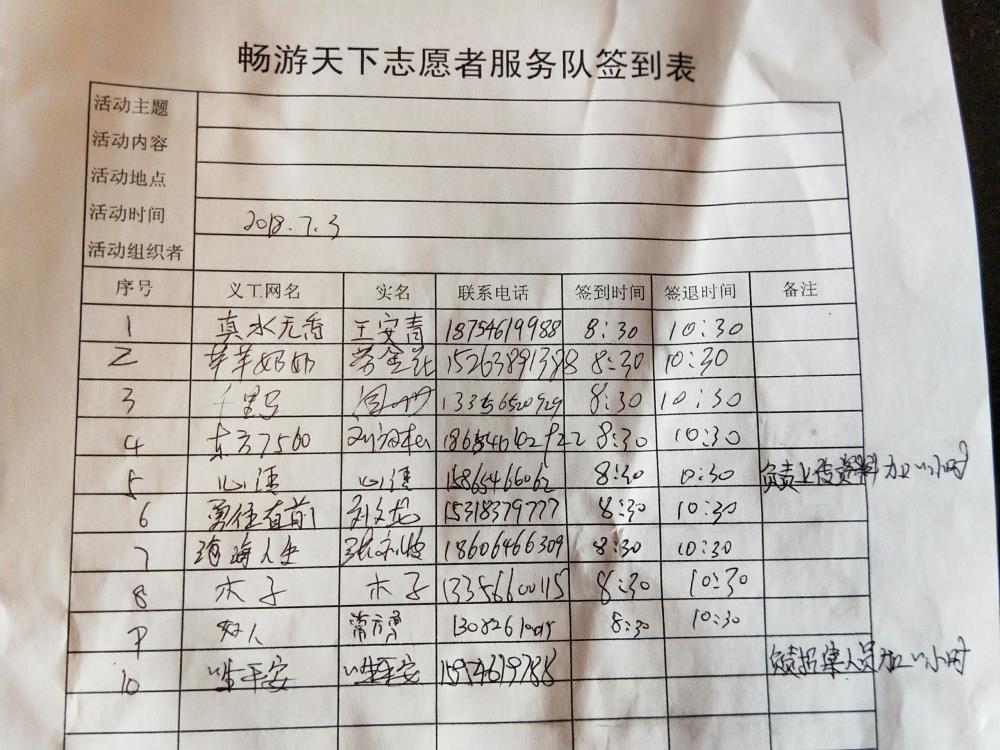 畅游天下志愿者服务队签到表
活动主题
活动内容
活动地点
活动时间 2018.7.3
活动组织者
序号 义工网名 实名 联系电话 签到时间 签退时间 备注
1 真水无香 王安青 18754619988 8:30 10:30
2 羊羊奶奶 15263891388 8:30 10:30
3 千里马 13356520929 8:30 10:30
4 东方7560 8:30 10:30
5 心涟 心涟 15865466062 8:30 10:30 负责上传资料加1小时
6 勇往直前 刘文龙 15318379777 8:30 10:30
7 人生 18606466309 8:30 10:30
8 木子 木子 13356600115 8:30 10:30
9 8:30 10:30
10 一生平安 一生平安 15954619788 负责招集人员加1小时